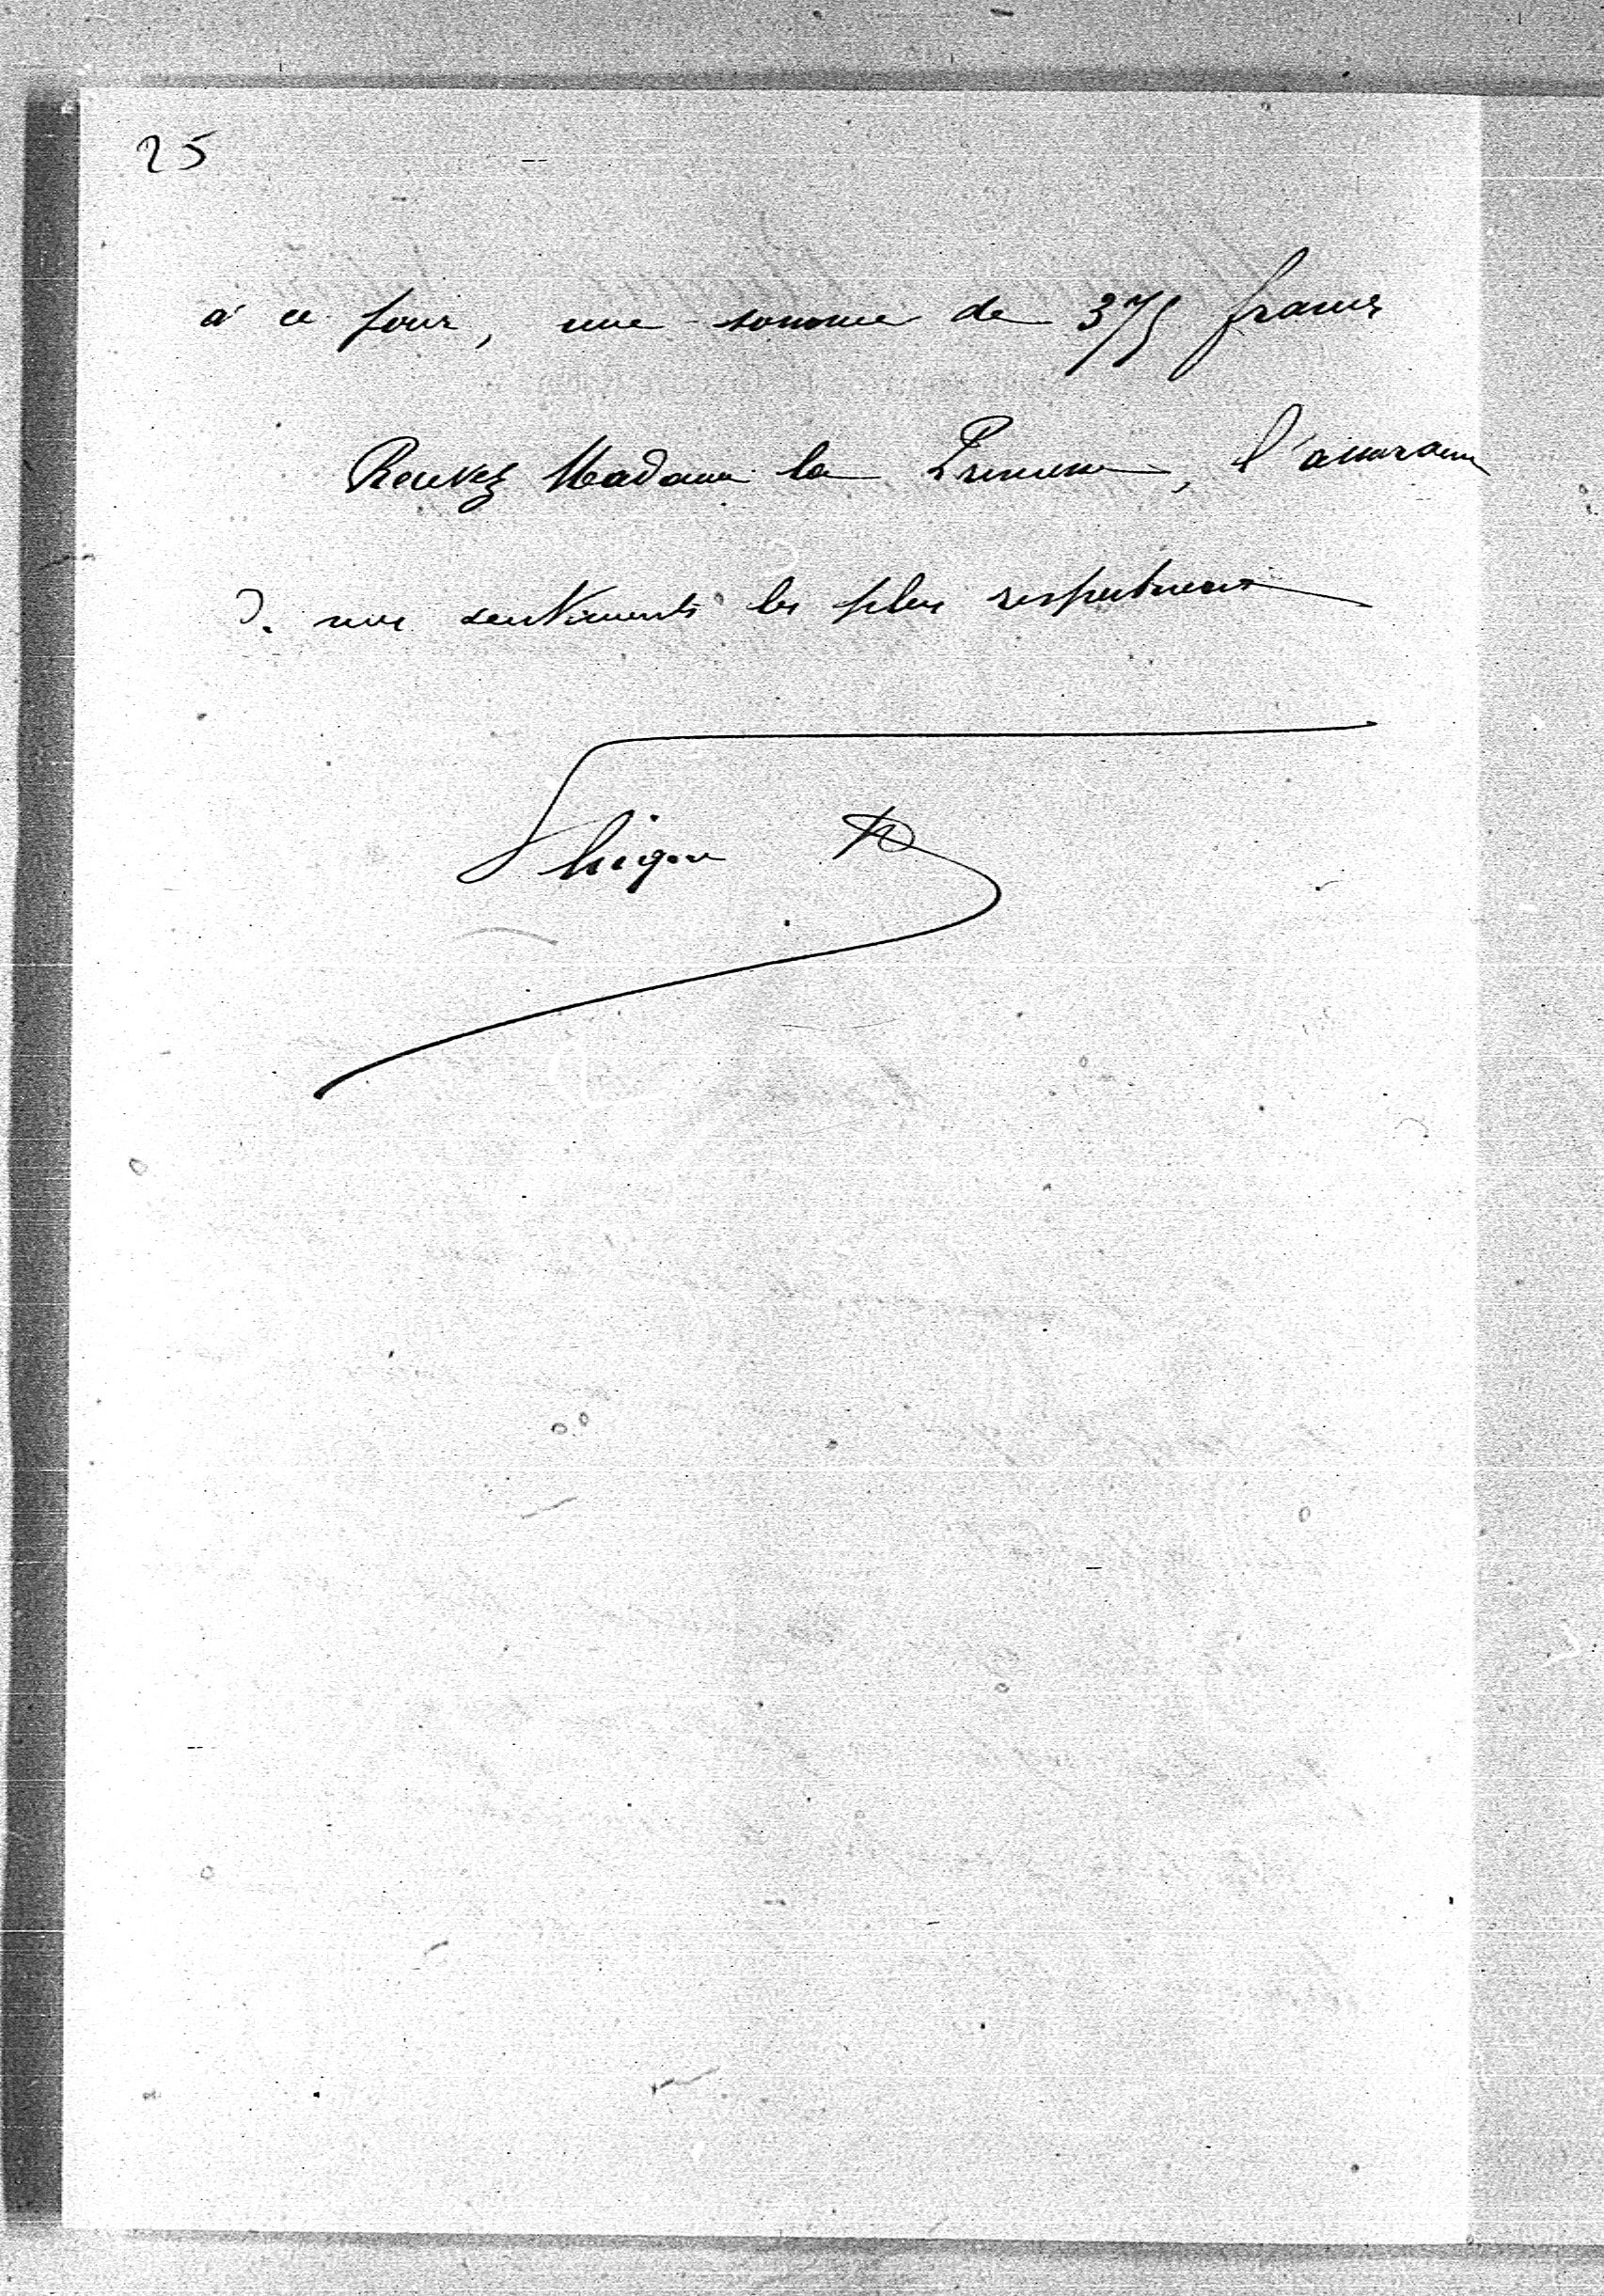 25
à ce jour, une somme de 375 francs
Recevez Madame la Princesse, l'assurance
de mes sentiments les plus respectueux